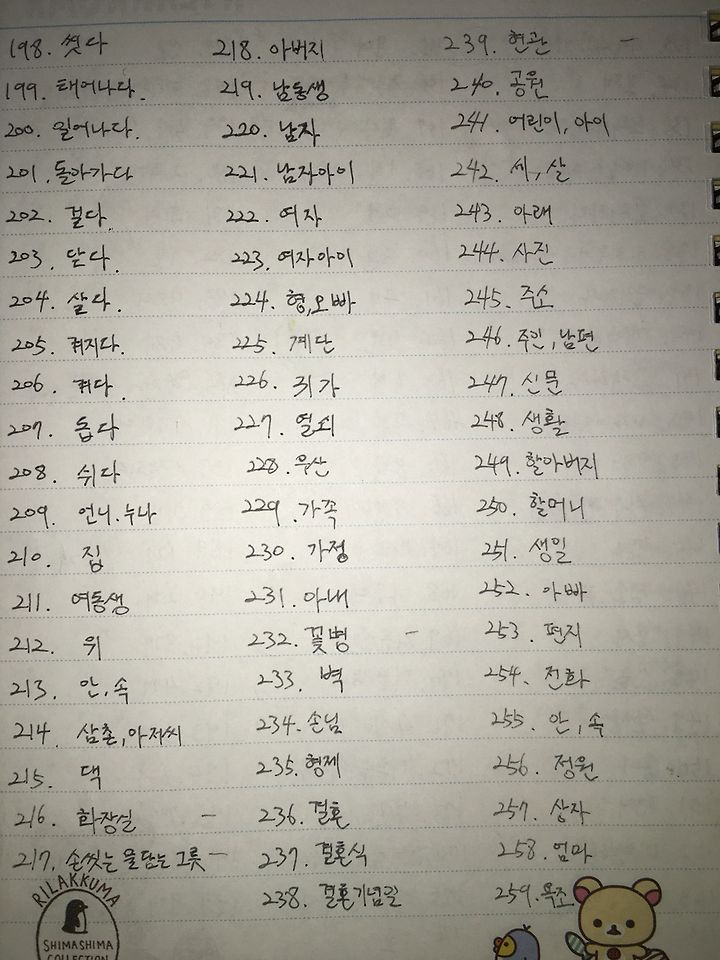 198. 씻다
199. 태어나다.
200. 일어나다.
201. 돌아가다
202. 걸다.
203. 닫다.
204. 살다.
205. 켜지다.
206. 켜다.
207. 돕다
208. 쉬다
209. 언니.누나
210. 집
211. 여동생
212. 위
213. 안, 속
214. 삼촌, 아저씨
215. 댁
216. 화장실 -
217. 손씻는 물담는 그릇 -
218. 아버지
219. 남동생
220. 남자
221. 남자아이
222. 여자
223. 여자아이
224. 형,오빠
225. 계단
226. 귀가
227. 열쇠
228. 우산
229. 가족
230. 가정
231. 아내
232. 꽃병 -
233. 벽
234. 손님
235. 형제
236. 결혼
237. 결혼식
238. 결혼기념일
239. 현관 -
240. 공원
241. 어린이, 아이
242. 세, 살
243. 아래
244. 사진
245. 주소
246. 주인, 남편
247. 신문
248. 생활
249. 할아버지
250. 할머니
251. 생일
252. 아빠
253. 편지
254. 전화
255. 안, 속
256. 정원
257. 상자
258. 엄마
259. 욕조
RILAKKUMA
SHIMASHIMA
COLLECTION